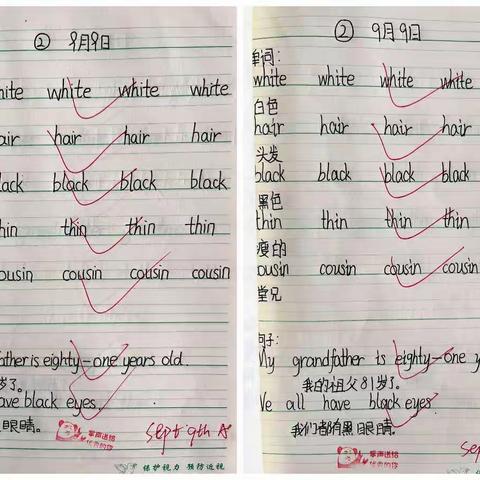 ② 9月9日
white white white
hair hair hair
black black black
thin thin thin
cousin cousin cousin
father is eighty-one years old.
岁了。
have black eyes.
眼睛。
掌声送给
优秀的你
Sept 9th A
保护视力 预防近视
② 9月9日
单词:
white white white white
白色
hair hair hair hair
头发
black black black black
黑色
thin thin thin thin
瘦的
cousin cousin cousin cousin
堂兄
句子:
My grandfather is eighty-one
我的祖父81岁了。
We all have black eyes.
我们都有黑眼睛。
掌声送给
优秀的你
Sept
保护视力